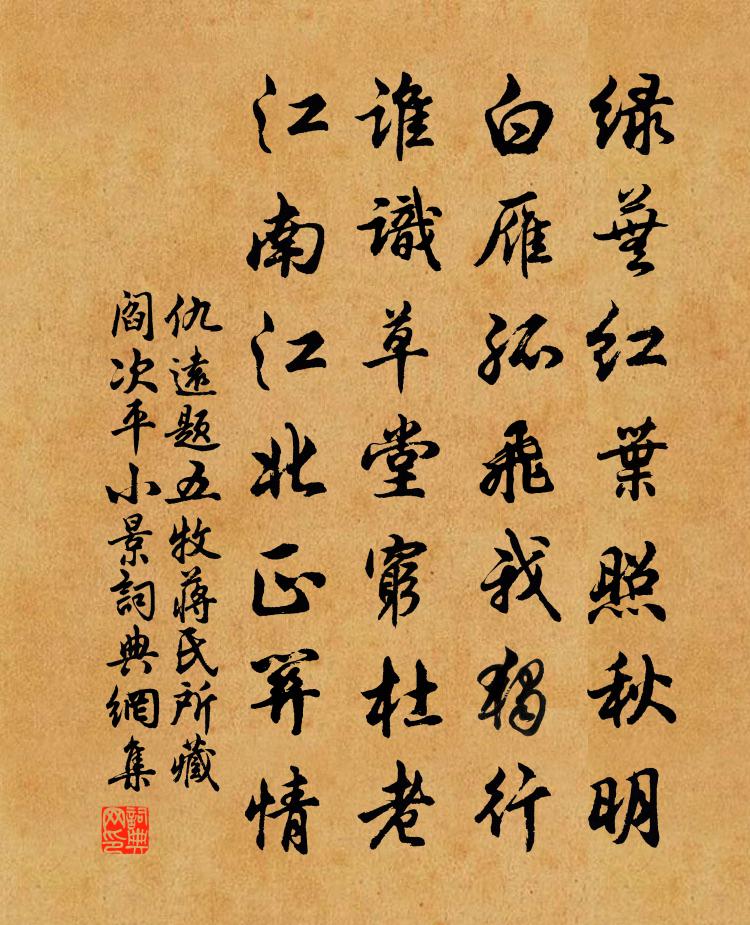 緑蕪紅葉照秋明
白雁孤飛我獨行
誰識草堂窮杜老
江南江北正關情
仇遠題五牧蔣氏所藏
閻次平小景詞典網集
詞典网印